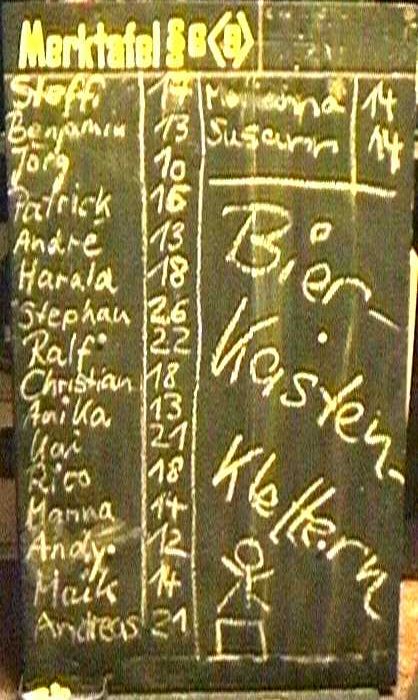 Merktafel §6(8)
Steffi 14
Benjamin 13
Jörg 10
Patrick 16
Andre 13
Harald 18
Stephan 26
Ralf 22
Christian 18
Anika 13
Kai 21
Rico 18
Hanna 14
Andy 12
Maik 14
Andreas 21
Marianna 14
Susann 14
Bier-
Kasten-
Klettern